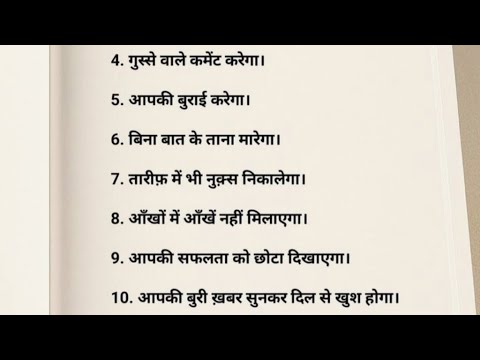 4. गुस्से वाले कमेंट करेगा।
5. आपकी बुराई करेगा।
6. बिना बात के ताना मारेगा।
7. तारीफ़ में भी नुक़्स निकालेगा।
8. आँखों में आँखें नहीं मिलाएगा।
9. आपकी सफलता को छोटा दिखाएगा।
10. आपकी बुरी ख़बर सुनकर दिल से खुश होगा।